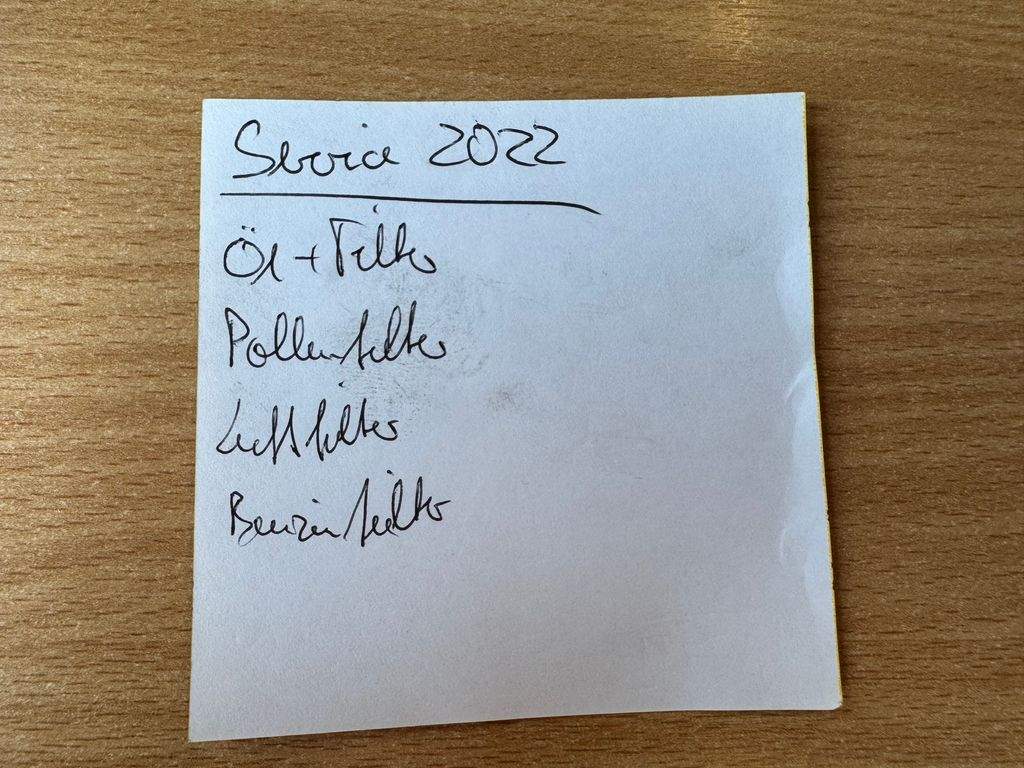 Service 2022
Öl + Filter
Pollenfilter
Luftfilter
Benzinfilter